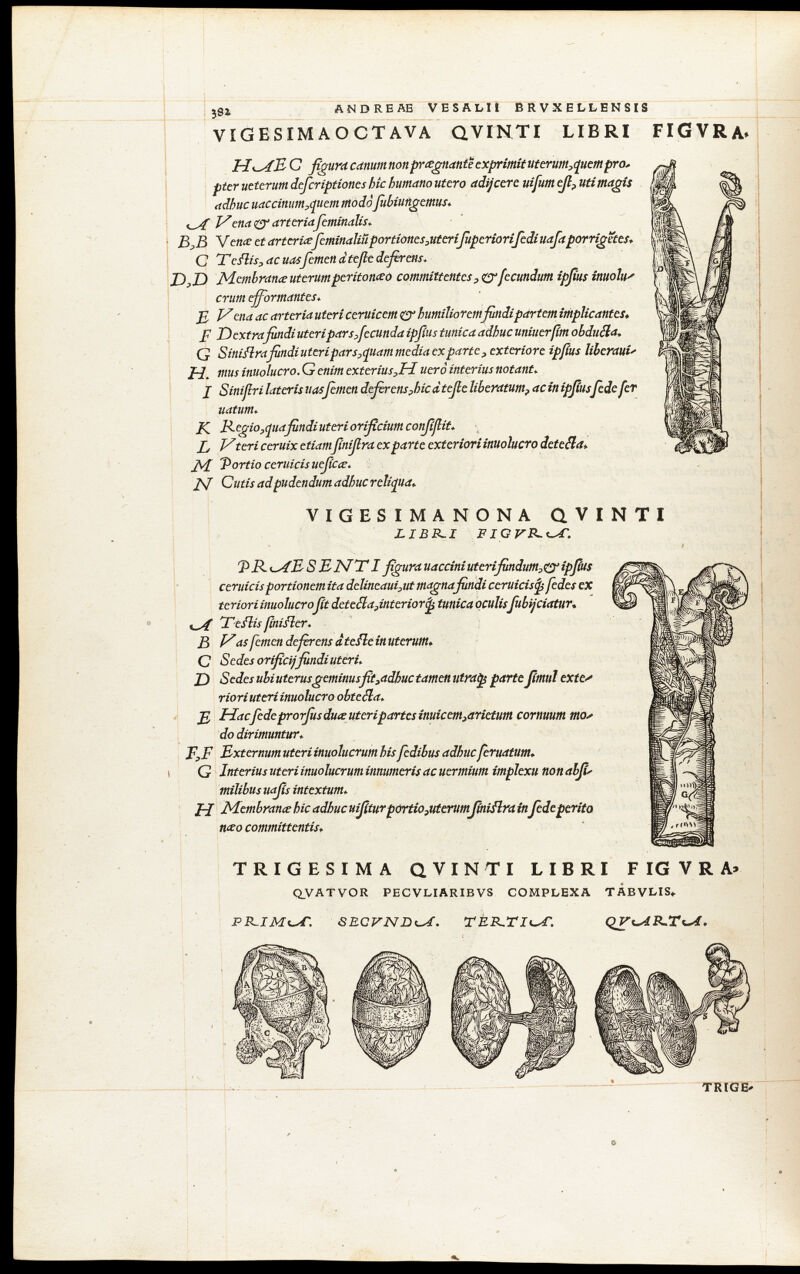 382 ANDREAE VESALII BRVXELLENSIS
VIGESIMAOCTAVA QVINTI LIBRI FIGVRA.
HAEC figura canum non prægnantē exprimit uterum, quem pro-
pter ueterum descriptiones hic humano utero adijcere uisum est, uti magis
adhuc uaccinum, quem modò subiungemus.
A Vena & arteria seminalis.
B,B Venæ et arteriæ seminaliū portiones, uteri superiori sedi uasa porrigētes.
C Testis, ac uas semen à teste deferens.
D,D Membranæ uterum peritonæo committentes, & secundum ipsius inuolu-
crum efformantes.
E Vena ac arteria uteri ceruicem & humiliorem fundi partem implicantes.
F Dextra fundi uteri pars, secunda ipsius tunica adhuc uniuersim obducta.
G Sinistra fundi uteri pars, quam media ex parte, exteriore ipsius liberaui-
H. mus inuolucro. G enim exterius, H uerò interius notant.
I Sinistri lateris uas semen deferens, hic à teste liberatum, ac in ipsius sede ser
uatum.
K Regio, qua fundi uteri orificium consistit.
L Vteri ceruix etiam sinistra ex parte exteriori inuolucro detecta.
M Portio ceruicis uesicæ.
N Cutis ad pudendum adhuc reliqua.
VIGESIMANONA QVINTI
LIBRI FIGVRA.
PRAESENTI figura uaccini uteri fundum, & ipsius
ceruicis portionem ita delineaui, ut magna fundi ceruicisq́; sedes ex
teriori inuolucro sit detecta, interiorq́; tunica oculis subijciatur.
A Testis sinister.
B Vas semen deferens à teste in uterum.
C Sedes orificij fundi uteri.
D Sedes ubi uterus geminus fit, adhuc tamen utraq; parte simul exte-
riori uteri inuolucro obtecta.
E Hac sede prorsus duæ uteri partes inuicem, arietum cornuum mo-
do dirimuntur.
F,F Externum uteri inuolucrum his sedibus adhuc seruatum.
G Interius uteri inuolucrum innumeris ac uermium implexu non absi-
milibus uasis intextum.
H Membranæ hic adhuc uisitur portio, uterum sinistra in sede perito
næo committentis.
TRIGESIMA QVINTI LIBRI FIGVRA,
QVATVOR PECVLIARIBVS COMPLEXA TABVLIS.
PRIMA. SECVNDA. TERTIA. QVARTA.
TRIGE-